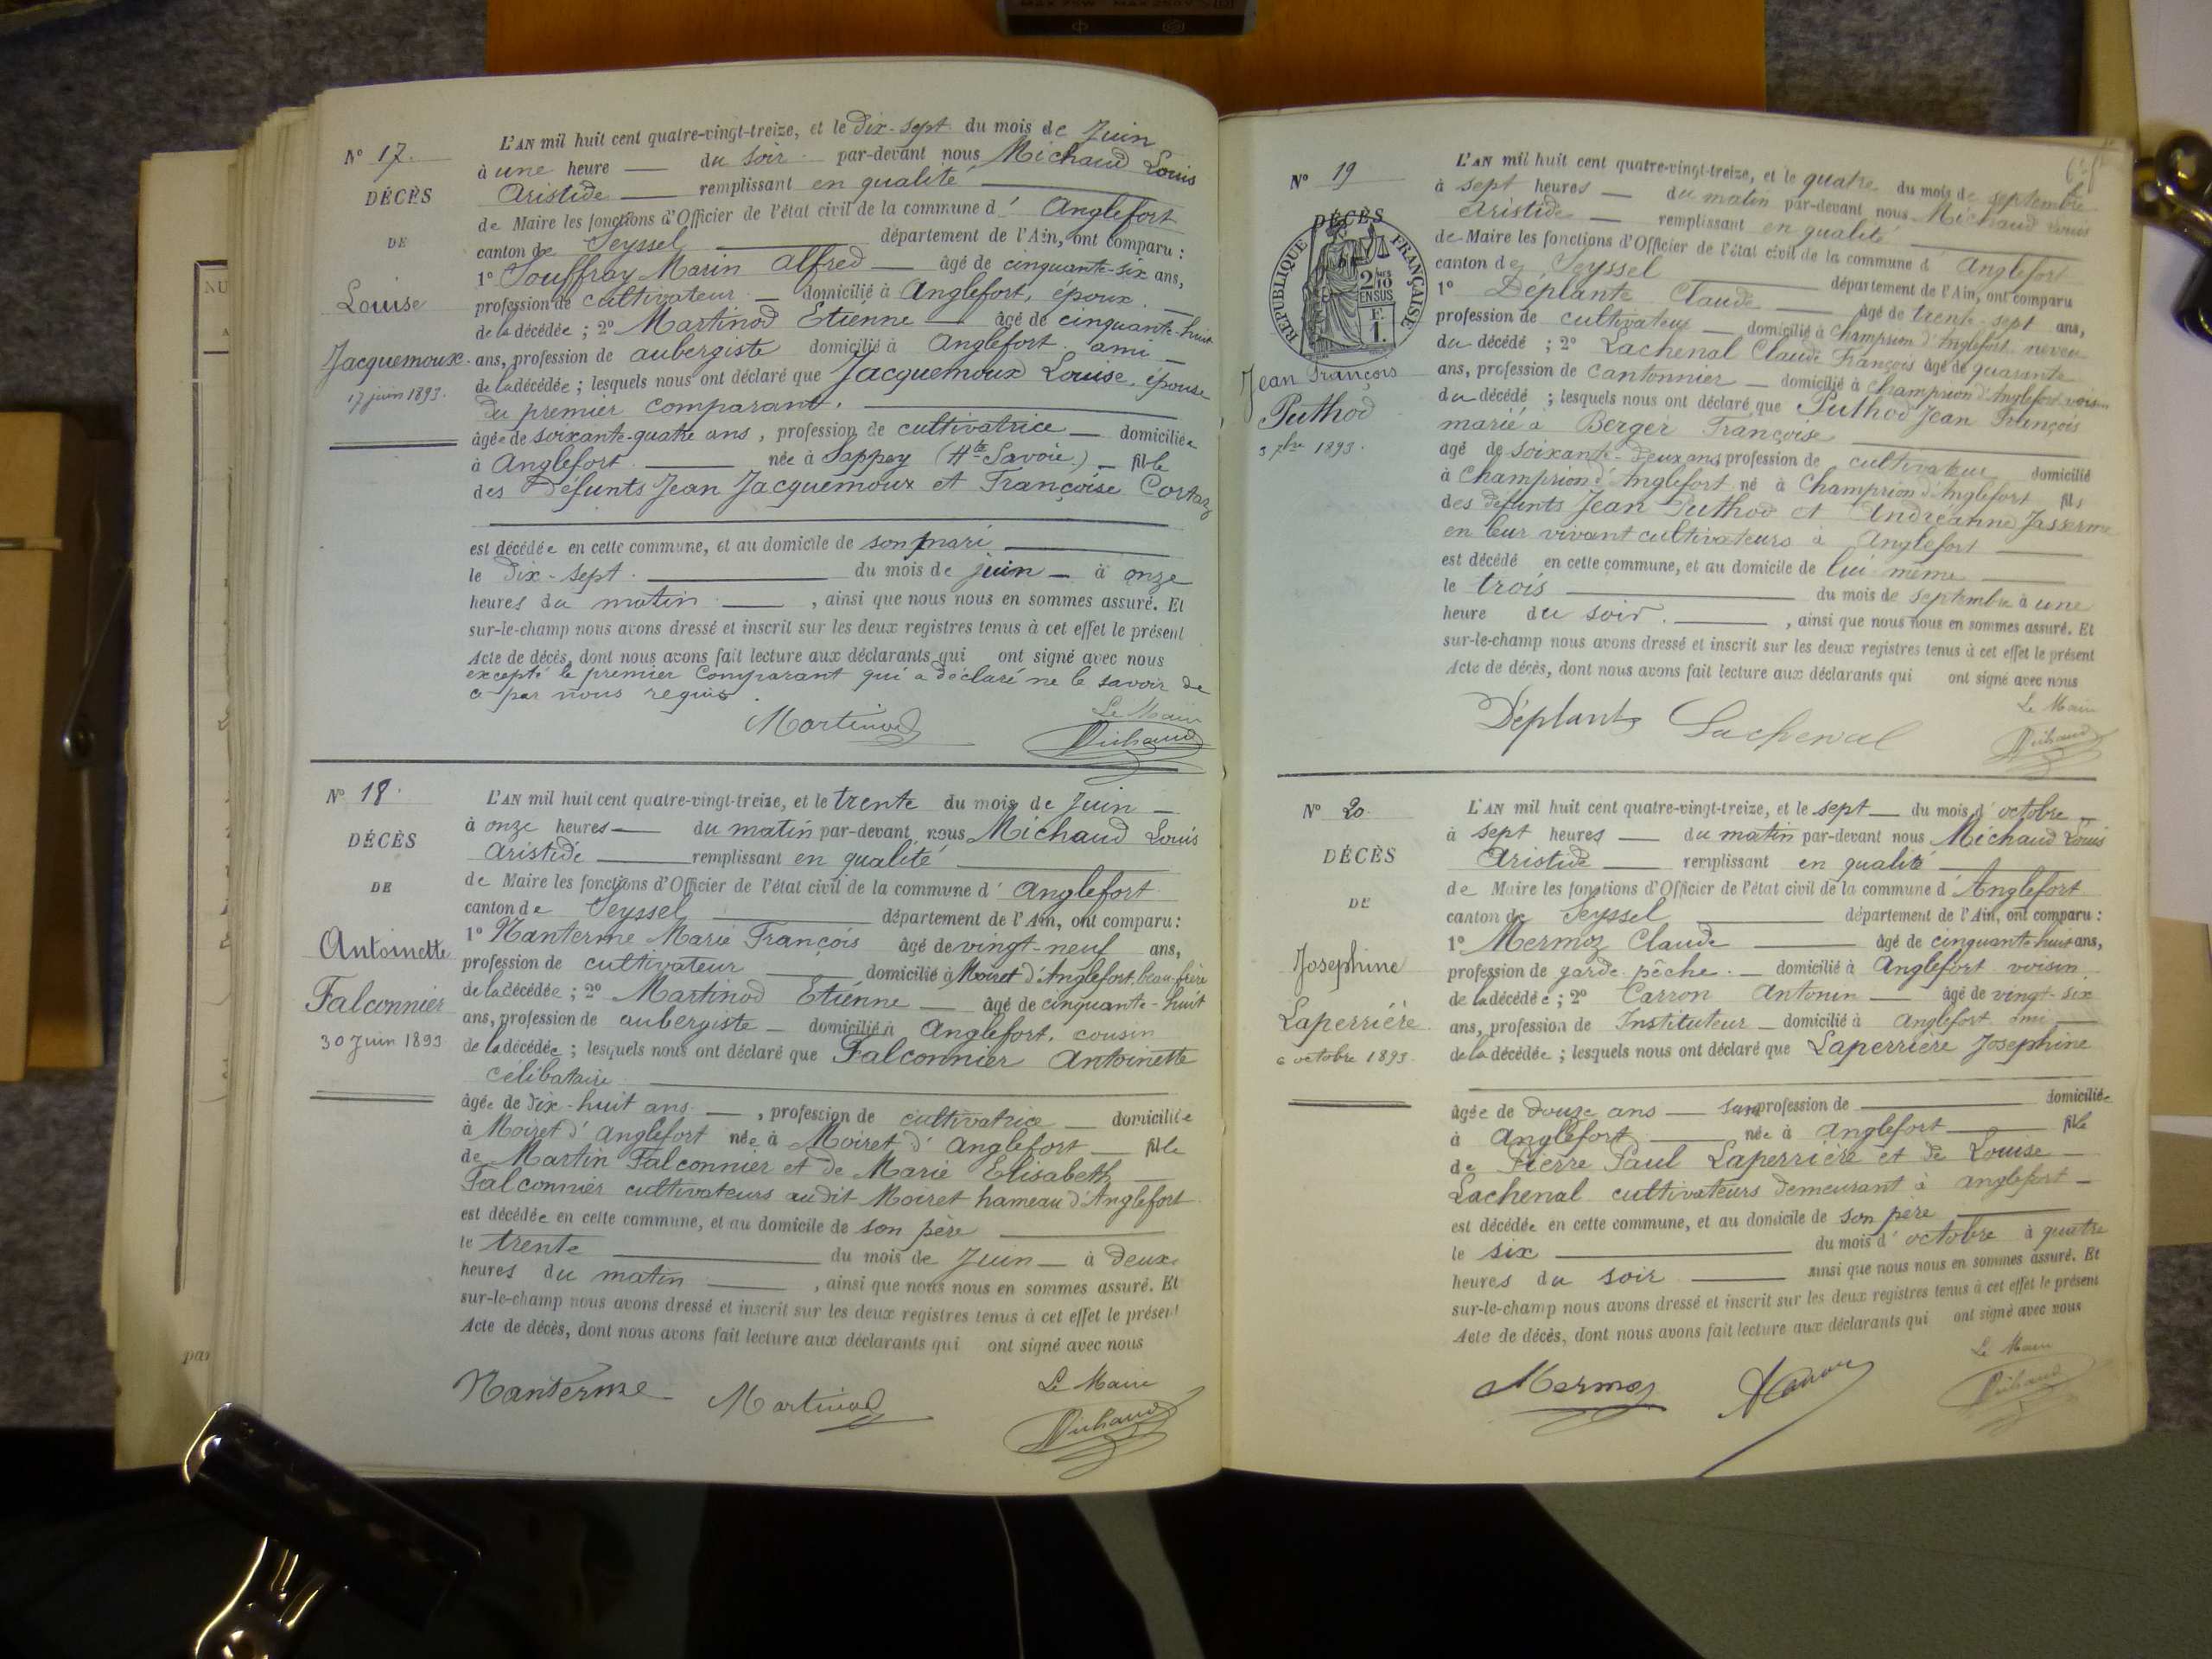 N° 17.
DÉCÈS
DE
Louise
Jacquemoux
17 juin 1893.
L'AN mil huit cent quatre-vingt-treize, et le dix-sept du mois de Juin
à une heure — du soir par-devant nous Michaud Louis
Aristide — remplissant en qualité
de Maire les fonctions d'Officier de l'état civil de la commune d' Anglefort
canton de Seyssel département de l'Ain, ont comparu :
1° Souffray Marin Alfred — âgé de cinquante-six ans,
profession de cultivateur — domicilié à Anglefort, époux
de la décédée ; 2° Martinod Etienne — âgé de cinquante-huit
ans, profession de aubergiste domicilié à Anglefort ami —
de la décédée ; lesquels nous ont déclaré que Jacquemoux Louise, épouse
du premier comparant.
âgée de soixante-quatre ans, profession de cultivatrice — domiciliée
à Anglefort née à Sappey (Hte Savoie) — fille
des défunts Jean Jacquemoux et Françoise Cortaz
est décédée en cette commune, et au domicile de son mari
le dix-sept du mois de juin — à onze
heures du matin , ainsi que nous nous en sommes assuré. Et
sur-le-champ nous avons dressé et inscrit sur les deux registres tenus à cet effet le présent
Acte de décès, dont nous avons fait lecture aux déclarants qui ont signé avec nous
excepté le premier comparant qui a déclaré ne le savoir de
ce par nous requis.
Le Maire
Martinod
Michaud
N° 18.
DÉCÈS
DE
Antoinette
Falconnier
30 Juin 1893
L'AN mil huit cent quatre-vingt-treize, et le trente du mois de Juin —
à onze heures — du matin par-devant nous Michaud Louis
Aristide remplissant en qualité
de Maire les fonctions d'Officier de l'état civil de la commune d' Anglefort
canton de Seyssel département de l'Ain, ont comparu :
1° Nanterme Marie François âgé de vingt-neuf ans,
profession de cultivateur domicilié à Moiret d'Anglefort, beau-frère
de la décédée ; 2° Martinod Etienne — âgé de cinquante-huit
ans, profession de aubergiste — domicilié à Anglefort, cousin
de la décédée ; lesquels nous ont déclaré que Falconnier Antoinette
célibataire
âgée de dix-huit ans — , profession de cultivatrice — domiciliée
à Moiret d'Anglefort née à Moiret d'Anglefort — fille
de Martin Falconnier et de Marie Elisabeth
Falconnier cultivateurs audit Moiret hameau d'Anglefort
est décédée en cette commune, et au domicile de son père
le trente du mois de Juin — à deux
heures du matin , ainsi que nous nous en sommes assuré. Et
sur-le-champ nous avons dressé et inscrit sur les deux registres tenus à cet effet le présent
Acte de décès, dont nous avons fait lecture aux déclarants qui ont signé avec nous
Le Maire
Nanterme Martinod
Michaud
N° 19
DÉCÈS
RÉPUBLIQUE FRANÇAISE
2/10
EN SUS
F.
1.
Jean François
Puthod
3 7bre 1893.
L'AN mil huit cent quatre-vingt-treize, et le quatre du mois de septembre
à sept heures — du matin par-devant nous Michaud Louis
Aristide — remplissant en qualité
de Maire les fonctions d'Officier de l'état civil de la commune d' Anglefort
canton de Seyssel département de l'Ain, ont comparu
1° Déplante Claude âgé de trente-sept ans,
profession de cultivateur — domicilié à Champrion d'Anglefort neveu
du décédé ; 2° Lachenal Claude François âgé de quarante
ans, profession de cantonnier — domicilié à Champrion d'Anglefort voisin
du décédé ; lesquels nous ont déclaré que Puthod Jean François
marié à Berger Françoise
âgé de soixante-deux ans profession de cultivateur domicilié
à Champrion d'Anglefort né à Champrion d'Anglefort fils
des défunts Jean Puthod et Andréanne Jasserme
en leur vivant cultivateurs à Anglefort
est décédé en cette commune, et au domicile de lui-même
le trois du mois de septembre à une
heure du soir. , ainsi que nous nous en sommes assuré. Et
sur-le-champ nous avons dressé et inscrit sur les deux registres tenus à cet effet le présent
Acte de décès, dont nous avons fait lecture aux déclarants qui ont signé avec nous
Le Maire
Déplante Lachenal
Michaud
N° 20
DÉCÈS
DE
Josephine
Laperrière
6 octobre 1893.
L'AN mil huit cent quatre-vingt-treize, et le sept — du mois d' octobre —
à sept heures — du matin par-devant nous Michaud Louis
Aristide — remplissant en qualité
de Maire les fonctions d'Officier de l'état civil de la commune d' Anglefort
canton de Seyssel département de l'Ain, ont comparu :
1° Mermoz Claude âgé de cinquante-huit ans,
profession de garde-pêche — domicilié à Anglefort voisin
de la décédée ; 2° Carron Antonin — âgé de vingt-six
ans, profession de Instituteur — domicilié à Anglefort ami —
de la décédée ; lesquels nous ont déclaré que Laperrière Josephine
âgée de douze ans — sans profession de domiciliée
à Anglefort née à Anglefort fille
de Pierre Paul Laperrière et de Louise —
Lachenal cultivateurs demeurant à anglefort —
est décédée en cette commune, et au domicile de son père
le six du mois d' octobre à quatre
heures du soir ainsi que nous nous en sommes assuré. Et
sur-le-champ nous avons dressé et inscrit sur les deux registres tenus à cet effet le présent
Acte de décès, dont nous avons fait lecture aux déclarants qui ont signé avec nous
Le Maire
Mermoz
Michaud